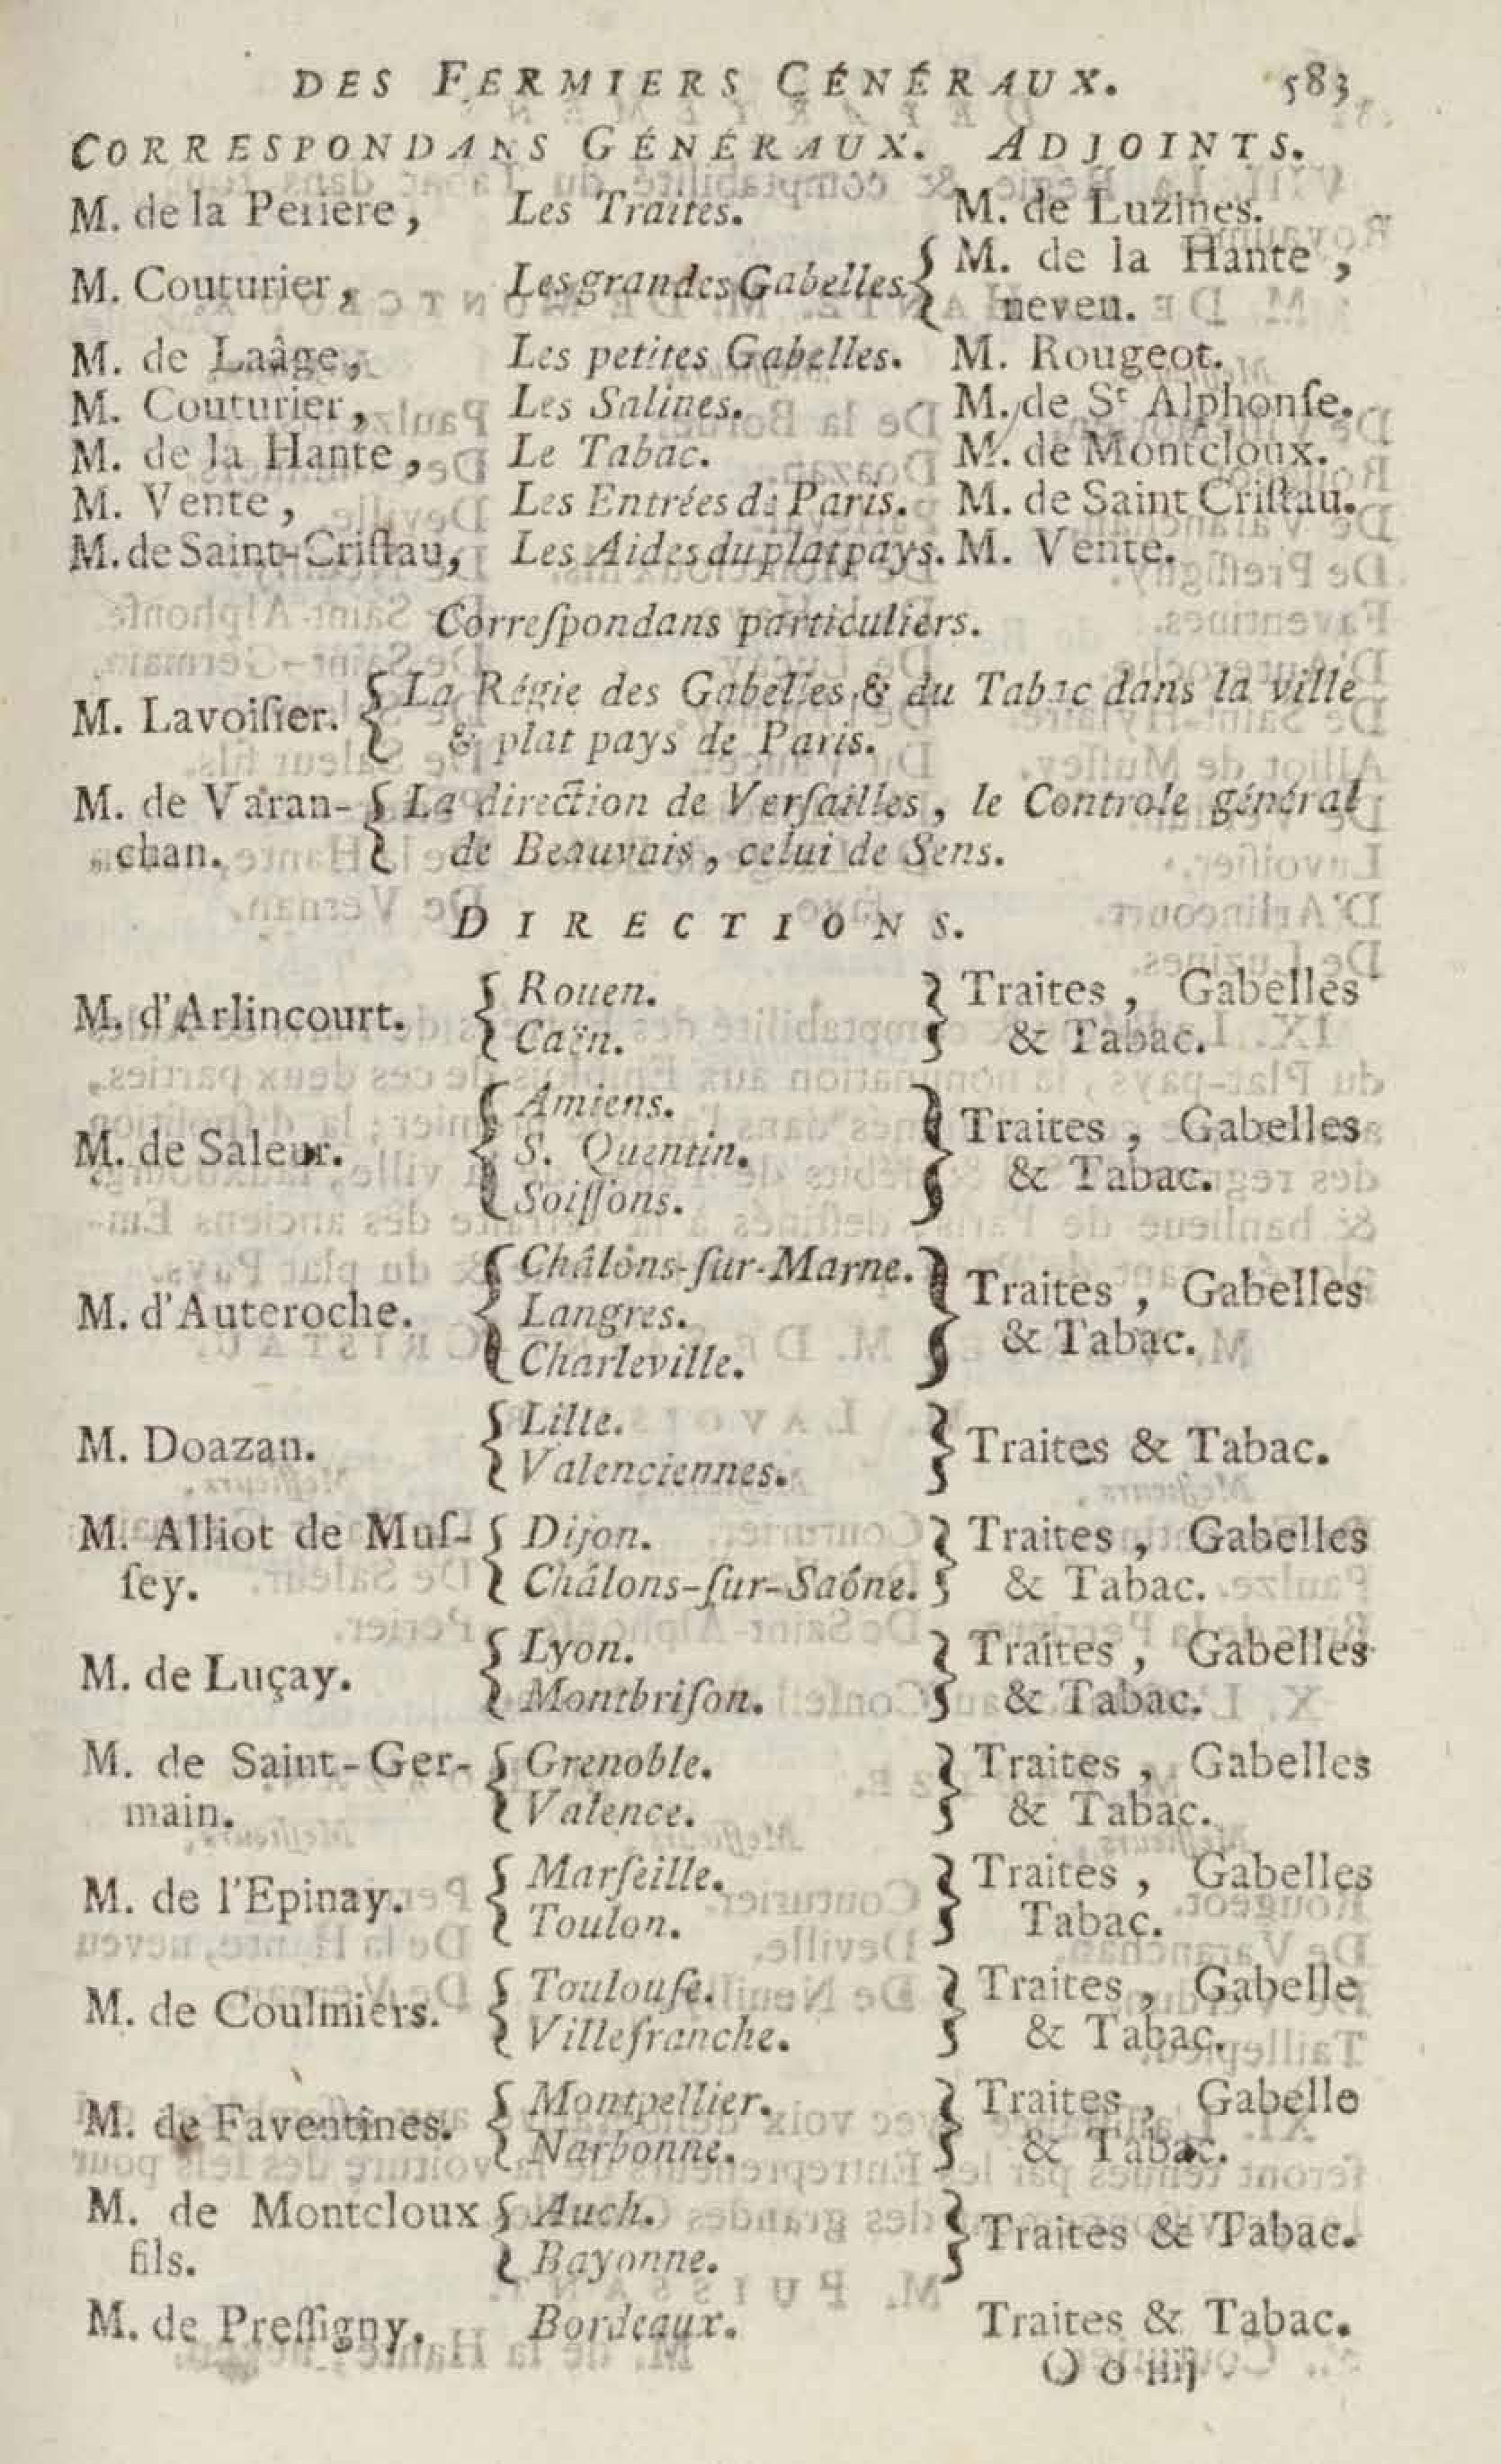 DES FERMIERS GÉNÉRAUX. 583
CORRESPONDANS GÉNÉRAUX. ADJOINTS.
M. de la Periere, Les Traites. M. de Luzines.
M. Couturier, Les grandes Gabelles. { M. de la Hante,
neveu.
M. de Laâge, Les petites Gabelles. M. Rougeot.
M. Couturier, Les Salines. M. de St Alphonſe.
M. de la Hante, Le Tabac. M. de Montcloux.
M. Vente, Les Entrées de Paris. M. de Saint Criſtau.
M. de Saint-Criſtau, Les Aides du plat pays. M. Vente.
Correſpondans particuliers.
M. Lavoiſier. { La Régie des Gabelles & du Tabac dans la ville
& plat pays de Paris.
M. de Varan- { La direction de Verſailles, le Controle général
chan. de Beauvais, celui de Sens.
DIRECTIONS.
M. d'Arlincourt. { Rouen. } Traites, Gabelles
Caën. & Tabac.
M. de Saleur. { Amiens. } Traites, Gabelles
S. Quentin. & Tabac.
Soiſſons.
M. d'Auteroche. { Châlons-ſur-Marne. } Traites, Gabelles
Langres. & Tabac.
Charleville.
M. Doazan. { Lille. } Traites & Tabac.
Valenciennes.
M. Alliot de Muſ- { Dijon. } Traites, Gabelles
ſey. Châlons-ſur-Saône. & Tabac.
M. de Luçay. { Lyon. } Traites, Gabelles
Montbriſon. & Tabac.
M. de Saint-Ger- { Grenoble. } Traites, Gabelles
main. Valence. & Tabac.
M. de l'Epinay. { Marſeille. } Traites, Gabelles
Toulon. Tabac.
M. de Coulmiers. { Toulouſe. } Traites, Gabelle
Villefranche. & Tabac.
M. de Faventines. { Montpellier. } Traites, Gabelle
Narbonne. & Tabac.
M. de Montcloux { Auch. } Traites & Tabac.
fils. Bayonne.
M. de Preſſigny. Bordeaux. Traites & Tabac.
O o iiij